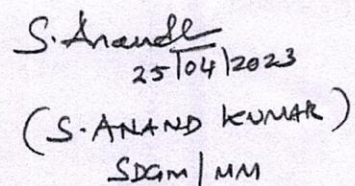 S. Anand
25/04/2023
(S. ANAND KUMAR)
SDGM/MM